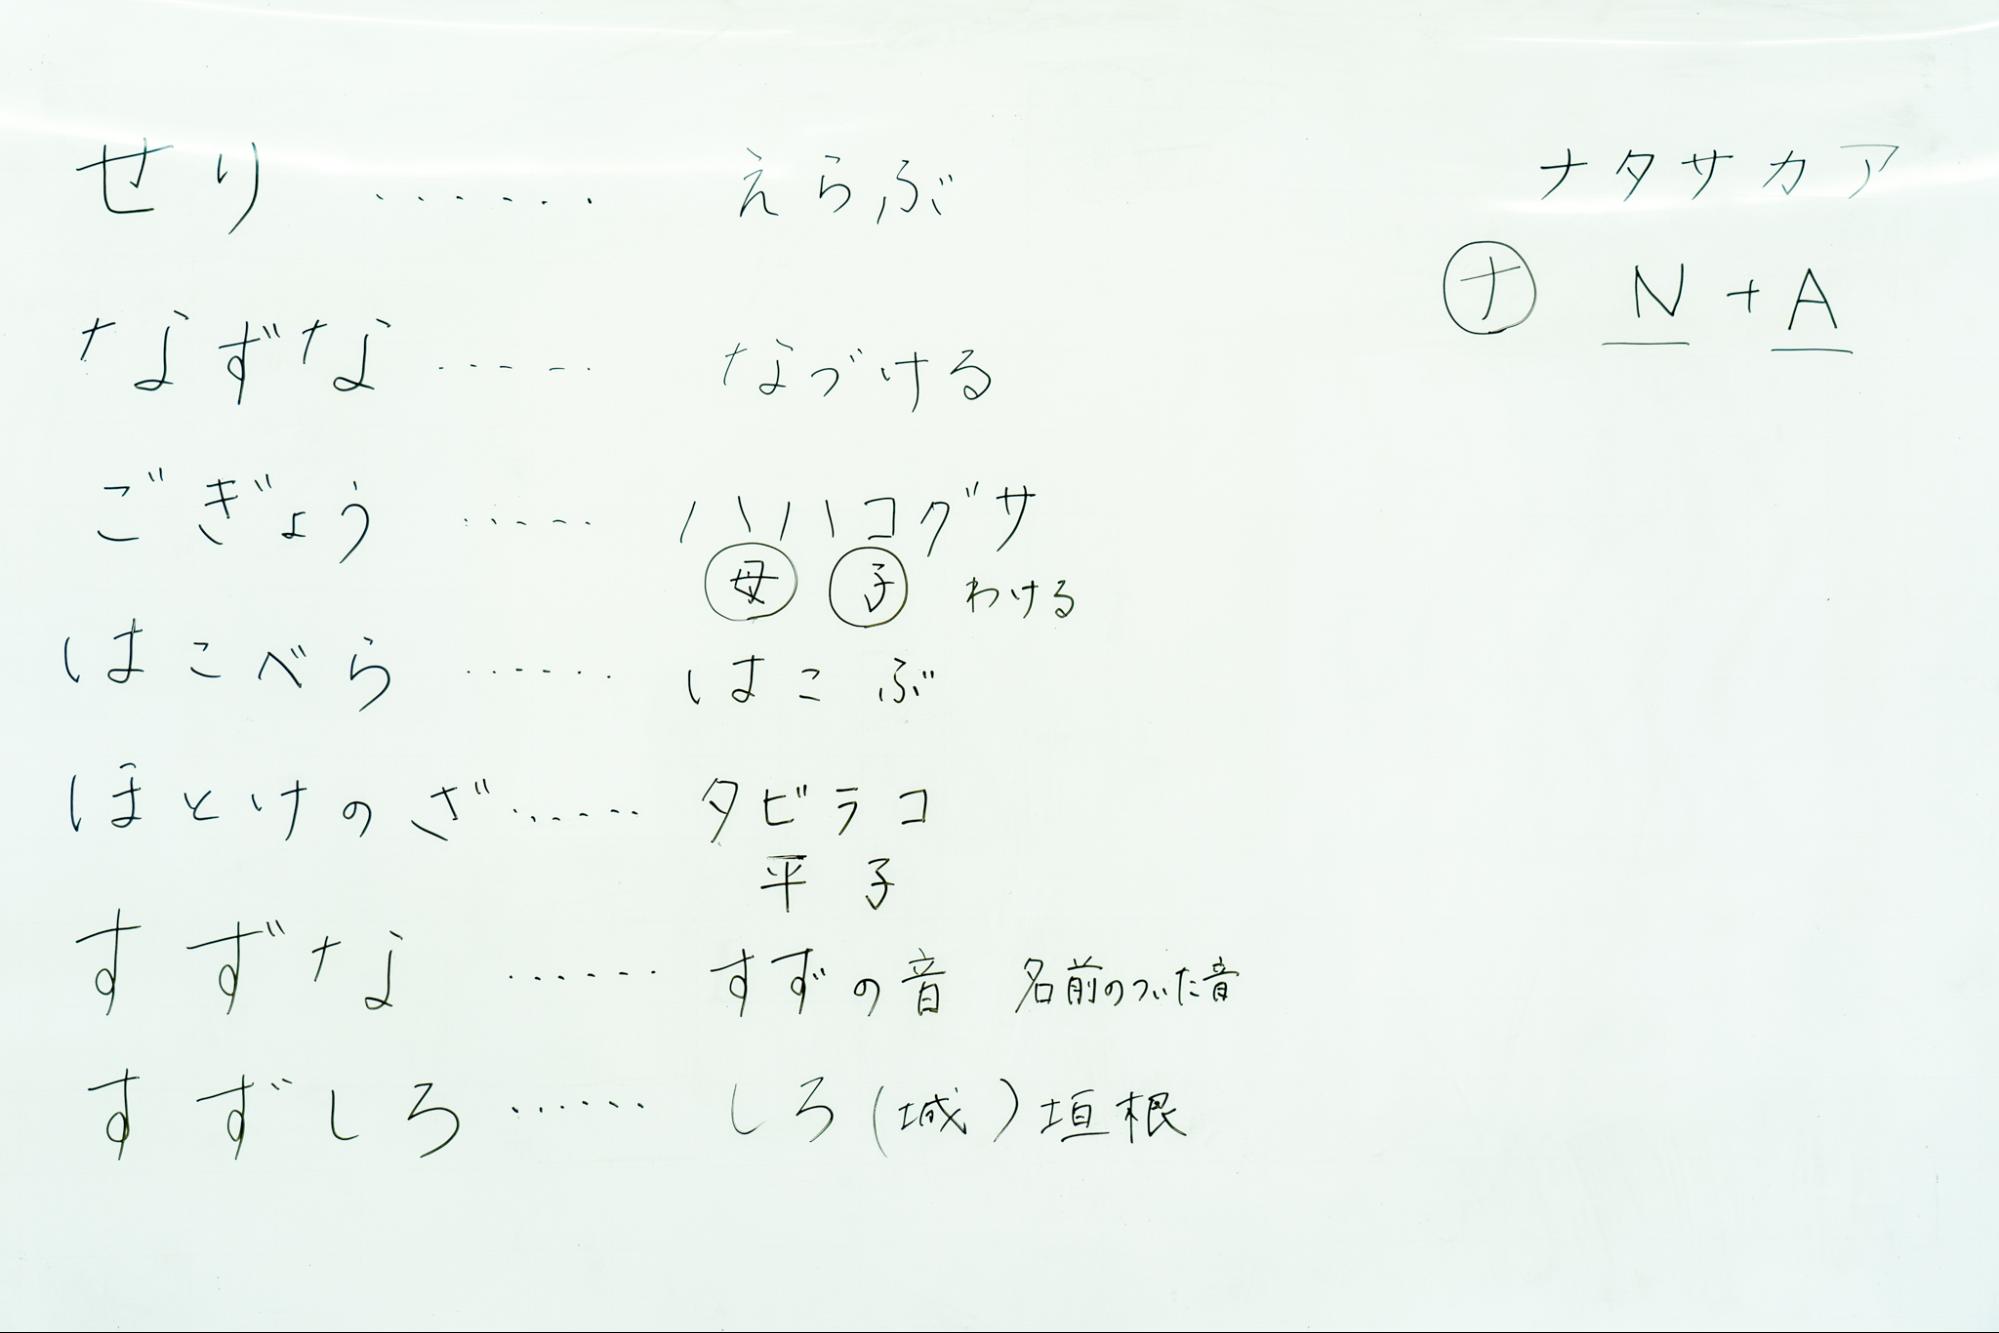 せり ‥‥‥ えらぶ
なずな ‥‥‥ なづける
ごぎょう ‥‥‥ ハハコグサ
母 子 わける
はこべら ‥‥‥ はこぶ
ほとけのざ ‥‥‥ タビラコ
平 子
すずな ‥‥‥ すずの音 名前のついた音
すずしろ ‥‥‥ しろ(城)垣根
ナタサカア
ナ N+A